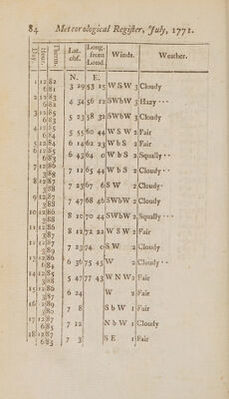 84 Meteorological Register, July, 1771.
Day. Hour. Therm. Lat. obs. Long. from Lond. Winds. Weather.
N. E.
1 12 82 3 29 53 15 W S W 3 Cloudy
6 81
2 12 83 4 34 56 12 SWbW 3 Hazy
6 82
3 12 85 5 23 58 32 SWbW 3 Cloudy
6 83
4 12 85 5 55 60 44 W S W 2 Fair
6 84
5 12 84 6 14 62 23 W b S 2 Fair
6 12 85 6 43 64 0 W b S 2 Squally
6 83
7 12 86 7 12 65 44 W b S 2 Cloudy
3 89
8 12 87 7 23 67 6 S W 2 Cloudy
3 88
9 12 87 7 47 68 46 SWbW 2 Cloudy
3 88
10 12 86 8 10 70 44 SWbW 2 Squally
3 88
11 12 86 8 12 72 22 W S W 2 Fair
3 87
12 12 87 7 23 74 0 S W 2 Cloudy
3 89
13 12 86 6 36 75 45 W 2 Cloudy
6 84
14 12 85 5 47 77 43 W N W 2 Fair
3 88
15 12 86 6 24 W 2 Fair
3 87
16 2 89 7 8 S b W 1 Fair
3 80
17 12 87 7 12 N b W 1 Cloudy
6 85
18 12 87 7 3 S E 1 Fair
6 85